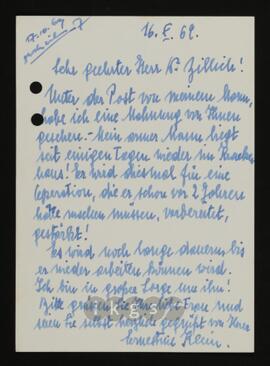 16. X. 69.
Sehr geehrter Herr Dr Zillich!
Unter der Post von meinem Mann,
habe ich eine Mahnung von Ihnen
gesehen. – Mein armer Mann liegt
seit einigen Tagen wieder im Kranken-
haus! Er wird diesmal für eine
Operation, die er schon vor 2 Jahren
hätte machen müssen, vorbereitet,
gestärkt!
Es wird noch lange dauern bis
er wieder arbeiten können wird.
Ich bin in großer Sorge um ihn!
Bitte grüßen Sie Ihre liebe Frau und
seien Sie selbst herzlichst gegrüßt von Ihrer
Ernestine Klein.
kgs